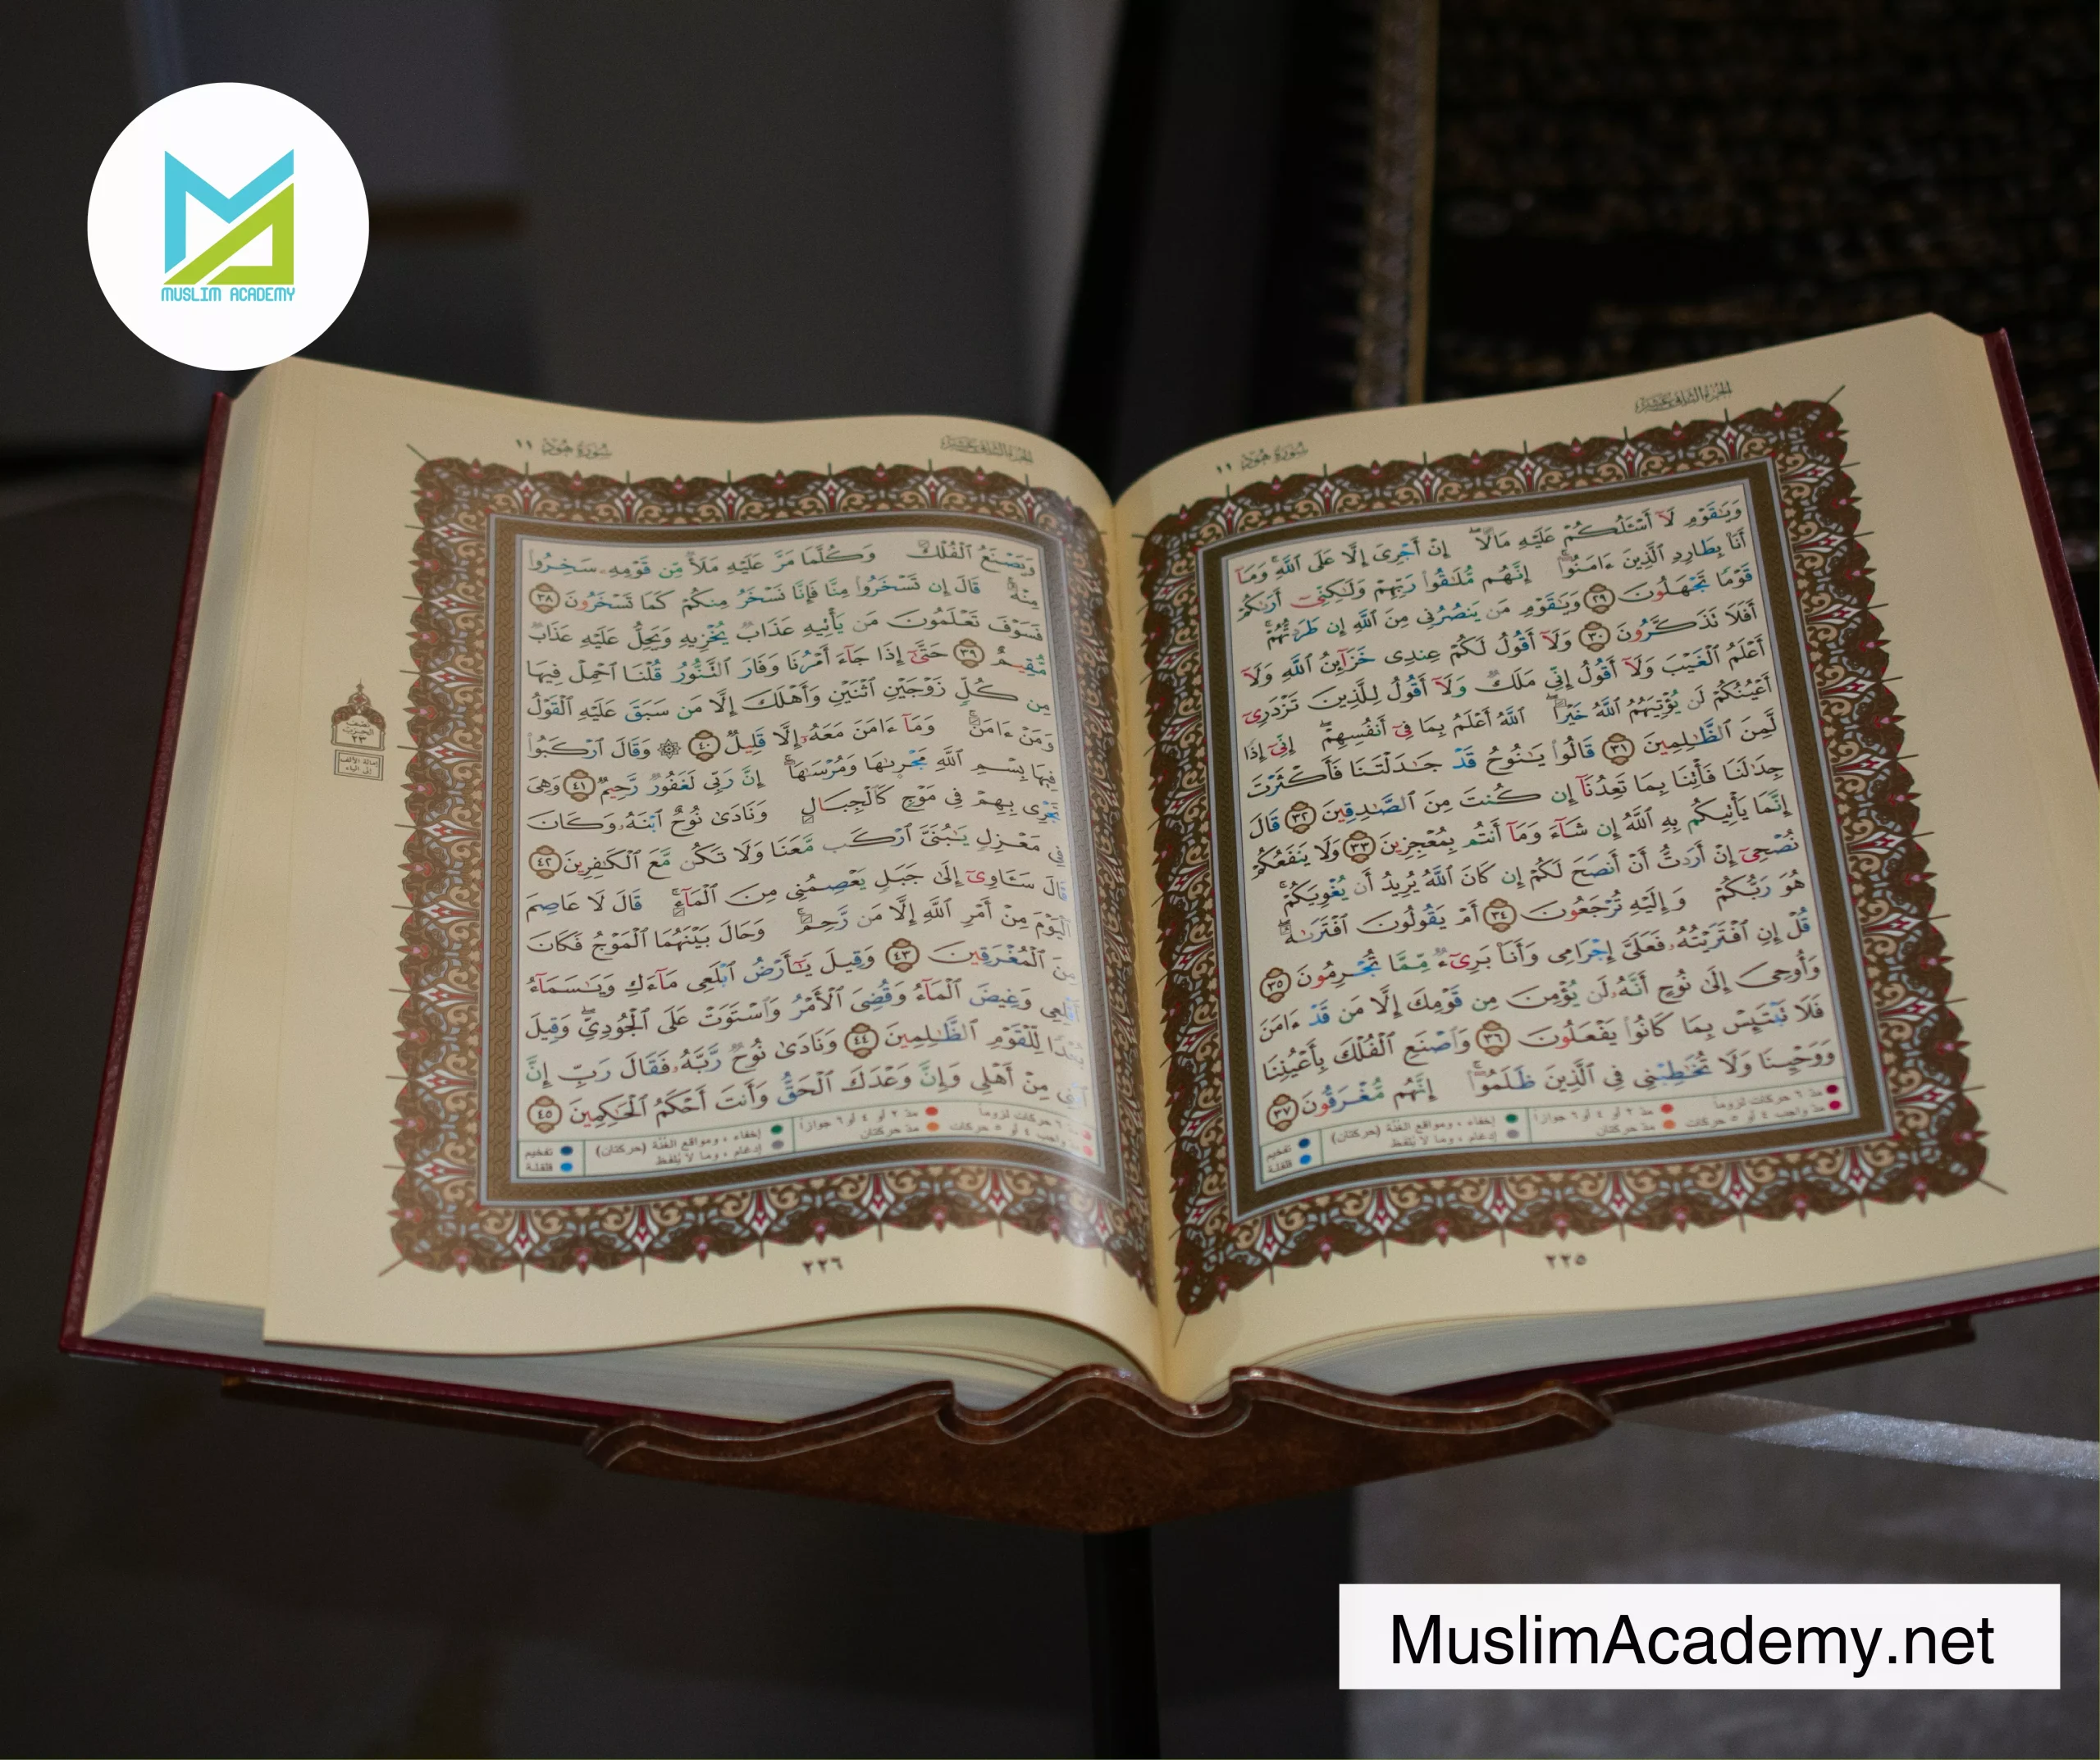 MUSLIM ACADEMY
الجزء الثاني عشر
سورة هود ١١
وَيَٰقَوْمِ لَآ أَسْـَٔلُكُمْ عَلَيْهِ مَالًا ۖ إِنْ أَجْرِىَ إِلَّا عَلَى ٱللَّهِ ۚ وَمَآ
أَنَا۠ بِطَارِدِ ٱلَّذِينَ ءَامَنُوٓا۟ ۚ إِنَّهُم مُّلَٰقُوا۟ رَبِّهِمْ وَلَٰكِنِّىٓ أَرَىٰكُمْ
قَوْمًا تَجْهَلُونَ ٢٩ وَيَٰقَوْمِ مَن يَنصُرُنِى مِنَ ٱللَّهِ إِن طَرَدتُّهُمْ ۚ
أَفَلَا تَذَكَّرُونَ ٣٠ وَلَآ أَقُولُ لَكُمْ عِندِى خَزَآئِنُ ٱللَّهِ وَلَآ
أَعْلَمُ ٱلْغَيْبَ وَلَآ أَقُولُ إِنِّى مَلَكٌ وَلَآ أَقُولُ لِلَّذِينَ تَزْدَرِىٓ
أَعْيُنُكُمْ لَن يُؤْتِيَهُمُ ٱللَّهُ خَيْرًا ۖ ٱللَّهُ أَعْلَمُ بِمَا فِىٓ أَنفُسِهِمْ ۖ إِنِّىٓ إِذًا
لَّمِنَ ٱلظَّٰلِمِينَ ٣١ قَالُوا۟ يَٰنُوحُ قَدْ جَٰدَلْتَنَا فَأَكْثَرْتَ
جِدَٰلَنَا فَأْتِنَا بِمَا تَعِدُنَآ إِن كُنتَ مِنَ ٱلصَّٰدِقِينَ ٣٢ قَالَ
إِنَّمَا يَأْتِيكُم بِهِ ٱللَّهُ إِن شَآءَ وَمَآ أَنتُم بِمُعْجِزِينَ ٣٣ وَلَا يَنفَعُكُمْ
نُصْحِىٓ إِنْ أَرَدتُّ أَنْ أَنصَحَ لَكُمْ إِن كَانَ ٱللَّهُ يُرِيدُ أَن يُغْوِيَكُمْ ۚ
هُوَ رَبُّكُمْ وَإِلَيْهِ تُرْجَعُونَ ٣٤ أَمْ يَقُولُونَ ٱفْتَرَىٰهُ ۖ
قُلْ إِنِ ٱفْتَرَيْتُهُۥ فَعَلَىَّ إِجْرَامِى وَأَنَا۠ بَرِىٓءٌ مِّمَّا تُجْرِمُونَ ٣٥
وَأُوحِىَ إِلَىٰ نُوحٍ أَنَّهُۥ لَن يُؤْمِنَ مِن قَوْمِكَ إِلَّا مَن قَدْ ءَامَنَ
فَلَا تَبْتَئِسْ بِمَا كَانُوا۟ يَفْعَلُونَ ٣٦ وَٱصْنَعِ ٱلْفُلْكَ بِأَعْيُنِنَا
وَوَحْيِنَا وَلَا تُخَٰطِبْنِى فِى ٱلَّذِينَ ظَلَمُوٓا۟ ۚ إِنَّهُم مُّغْرَقُونَ ٣٧
مدّ ٦ حركات لزوماً مدّ ٢ أو ٤ أو ٦ جوازاً إخفاء ، ومواقع الغُنَّة (حركتان) تفخيم
مدّ واجب ٤ أو ٥ حركات مدّ حركتان إدغام ، وما لا يُلفظ قلقلة
٢٢٥
الجزء الثاني عشر
سورة هود ١١
وَيَصْنَعُ ٱلْفُلْكَ وَكُلَّمَا مَرَّ عَلَيْهِ مَلَأٌ مِّن قَوْمِهِۦ سَخِرُوا۟
مِنْهُ ۚ قَالَ إِن تَسْخَرُوا۟ مِنَّا فَإِنَّا نَسْخَرُ مِنكُمْ كَمَا تَسْخَرُونَ ٣٨
فَسَوْفَ تَعْلَمُونَ مَن يَأْتِيهِ عَذَابٌ يُخْزِيهِ وَيَحِلُّ عَلَيْهِ عَذَابٌ
مُّقِيمٌ ٣٩ حَتَّىٰٓ إِذَا جَآءَ أَمْرُنَا وَفَارَ ٱلتَّنُّورُ قُلْنَا ٱحْمِلْ فِيهَا
مِن كُلٍّ زَوْجَيْنِ ٱثْنَيْنِ وَأَهْلَكَ إِلَّا مَن سَبَقَ عَلَيْهِ ٱلْقَوْلُ
وَمَنْ ءَامَنَ ۚ وَمَآ ءَامَنَ مَعَهُۥٓ إِلَّا قَلِيلٌ ٤٠ ۞ وَقَالَ ٱرْكَبُوا۟
فِيهَا بِسْمِ ٱللَّهِ مَجْر۪ىٰهَا وَمُرْسَىٰهَآ ۚ إِنَّ رَبِّى لَغَفُورٌ رَّحِيمٌ ٤١ وَهِىَ
تَجْرِى بِهِمْ فِى مَوْجٍ كَٱلْجِبَالِ وَنَادَىٰ نُوحٌ ٱبْنَهُۥ وَكَانَ
فِى مَعْزِلٍ يَٰبُنَىَّ ٱرْكَب مَّعَنَا وَلَا تَكُن مَّعَ ٱلْكَٰفِرِينَ ٤٢
قَالَ سَـَٔاوِىٓ إِلَىٰ جَبَلٍ يَعْصِمُنِى مِنَ ٱلْمَآءِ ۚ قَالَ لَا عَاصِمَ
ٱلْيَوْمَ مِنْ أَمْرِ ٱللَّهِ إِلَّا مَن رَّحِمَ ۚ وَحَالَ بَيْنَهُمَا ٱلْمَوْجُ فَكَانَ
مِنَ ٱلْمُغْرَقِينَ ٤٣ وَقِيلَ يَٰٓأَرْضُ ٱبْلَعِى مَآءَكِ وَيَٰسَمَآءُ
أَقْلِعِى وَغِيضَ ٱلْمَآءُ وَقُضِىَ ٱلْأَمْرُ وَٱسْتَوَتْ عَلَى ٱلْجُودِىِّ ۖ وَقِيلَ
بُعْدًا لِّلْقَوْمِ ٱلظَّٰلِمِينَ ٤٤ وَنَادَىٰ نُوحٌ رَّبَّهُۥ فَقَالَ رَبِّ إِنَّ
ٱبْنِى مِنْ أَهْلِى وَإِنَّ وَعْدَكَ ٱلْحَقُّ وَأَنتَ أَحْكَمُ ٱلْحَٰكِمِينَ ٤٥
٦ حركات لزوماً مدّ ٢ أو ٤ أو ٦ جوازاً إخفاء ، ومواقع الغُنَّة (حركتان) تفخيم
واجب ٤ أو ٥ حركات مدّ حركتان إدغام ، وما لا يُلفظ قلقلة
نصف
الحزب
٢٣
إمالة الألف
إلى الياء
٢٢٦
MuslimAcademy.net